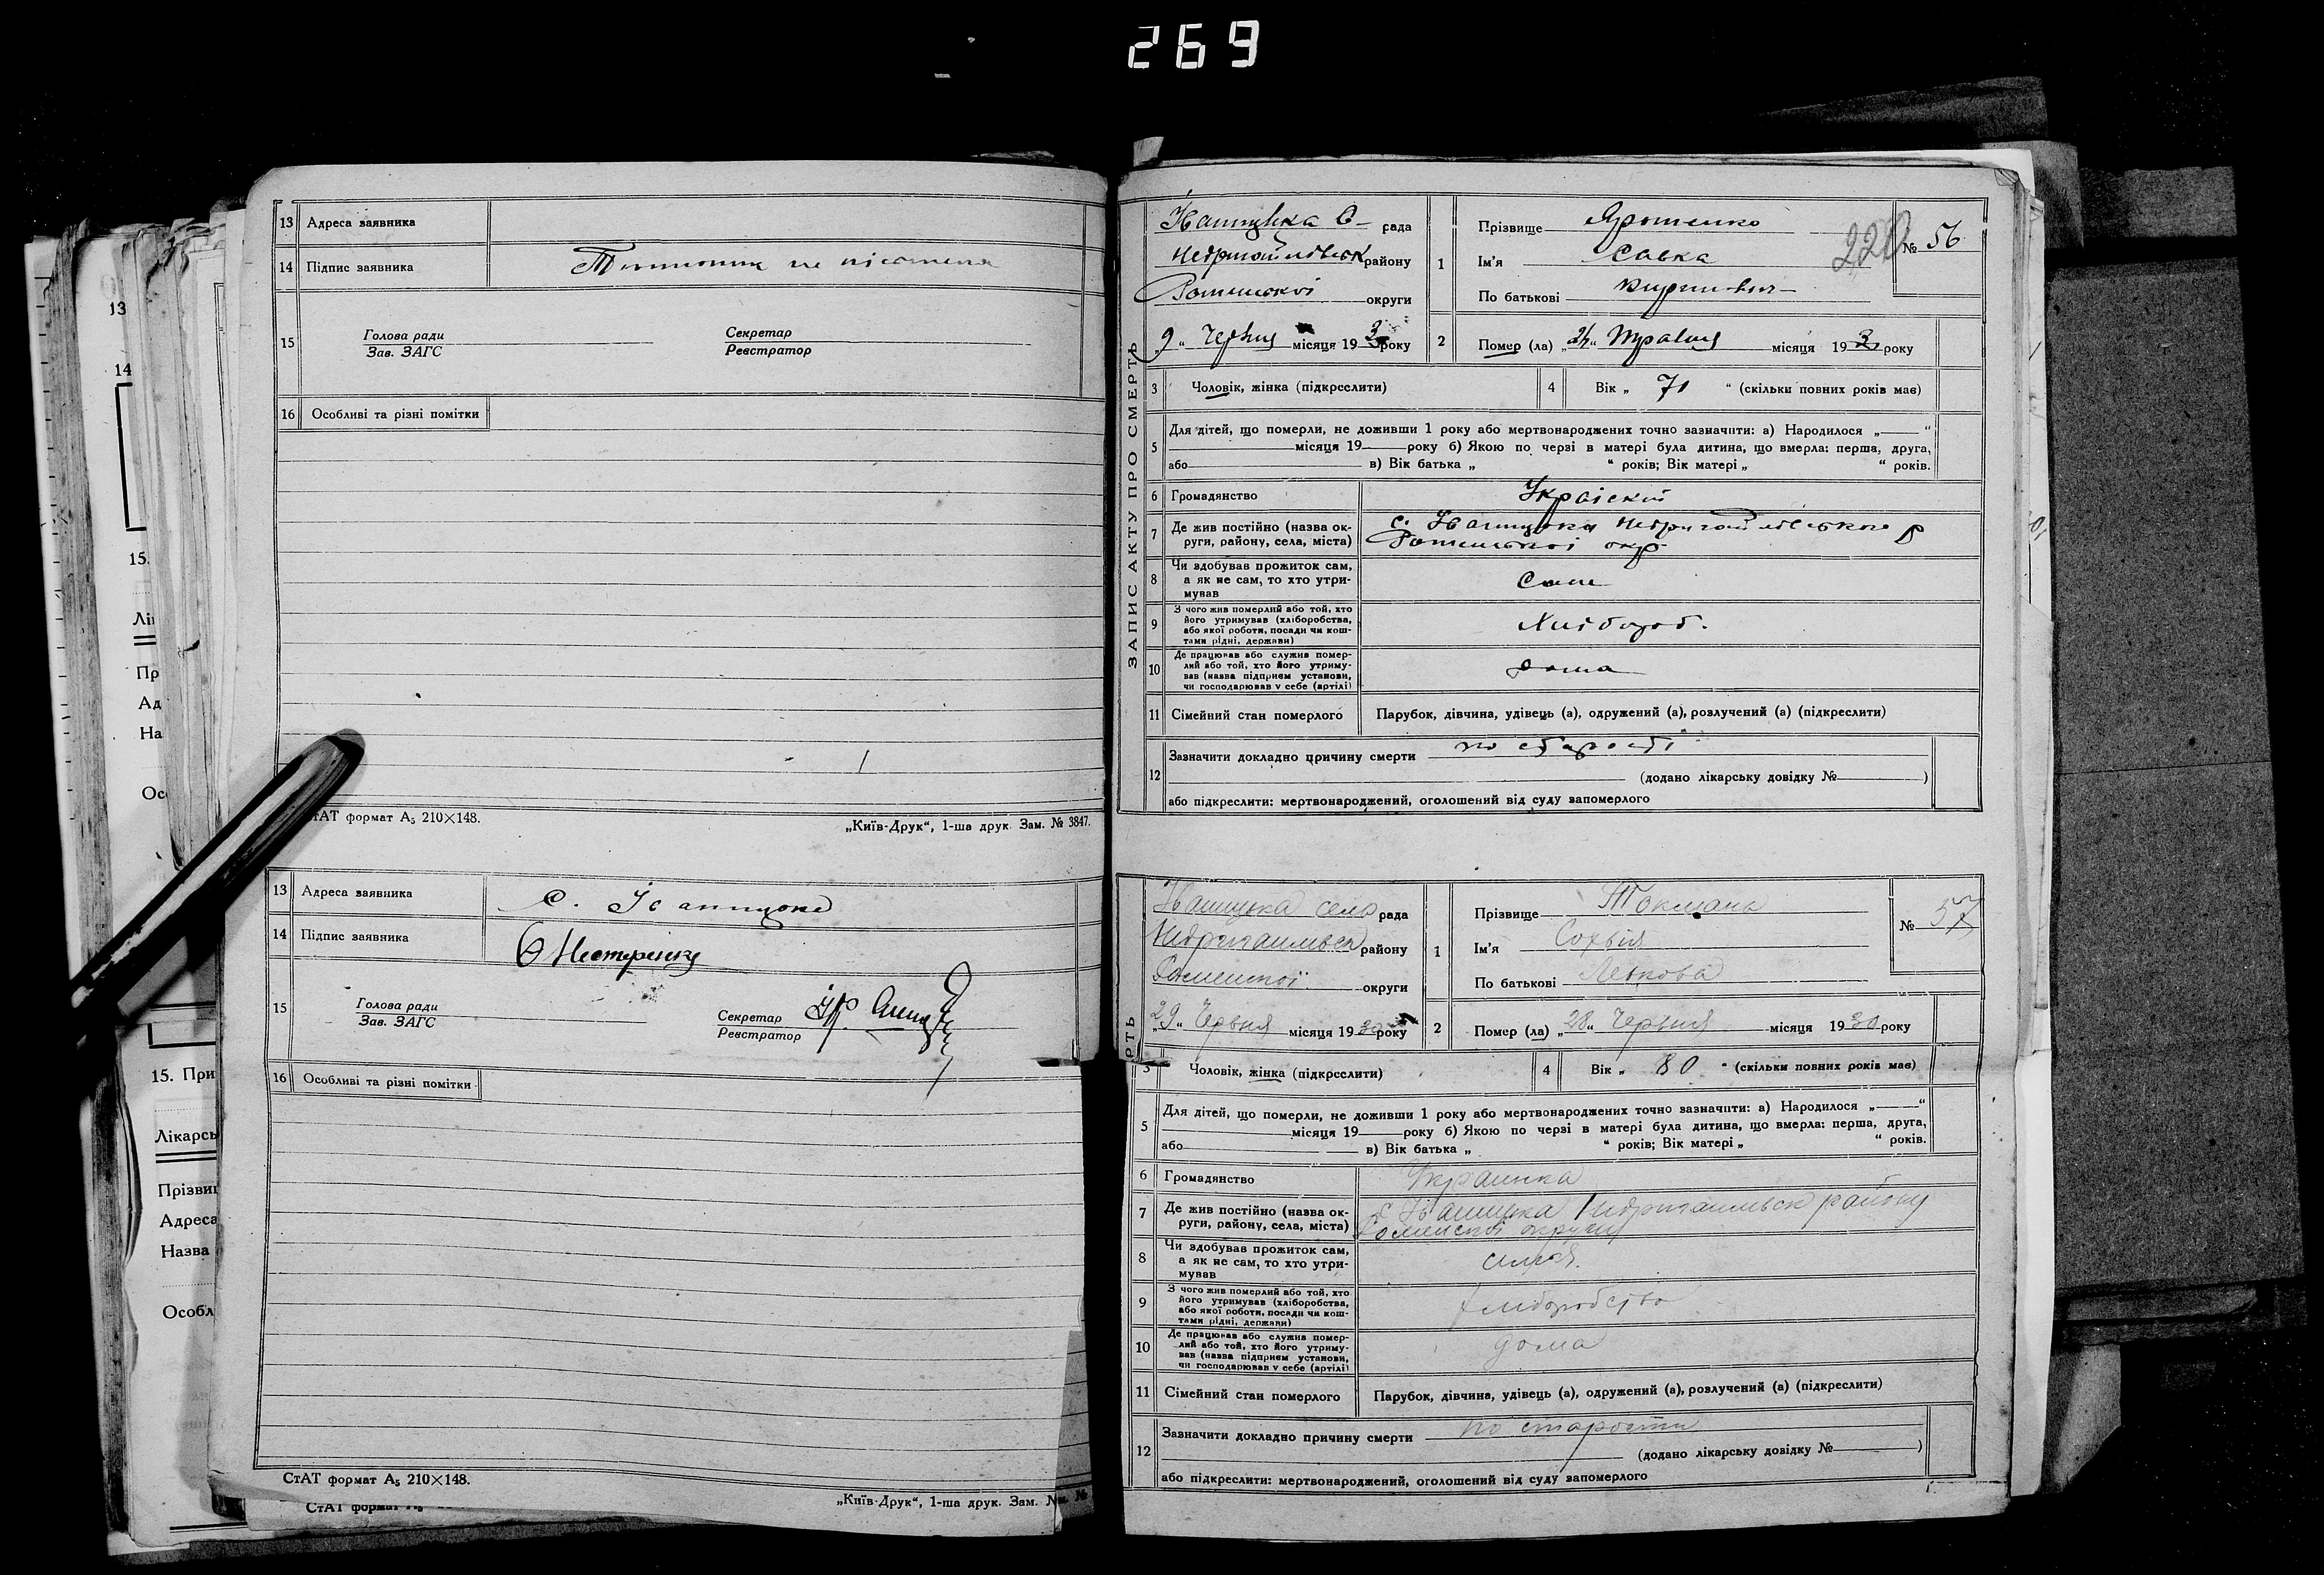 269
13 Адреса заявника
14 Підпис заявника
15 Голова ради Секретар
Зав. ЗАГС Реєстратор
16 Особливі та різні помітки
СтАТ формат А₅ 210×148.
„Київ-Друк“, 1-ша друк. Зам. № 3847.
13 Адреса заявника с. Іваницька
14 Підпис заявника Нестеренко
15 Голова ради Секретар
Зав. ЗАГС Реєстратор
16 Особливі та різні помітки
СтАТ формат А₅ 210×148.
„Київ-Друк“, 1-ша друк. Зам. №
СтАТ формат А₅
13
14
15.
Лі
Пр
Ад
На
Ос
15. При
Лікарсь
Прізвищ
Адреса
Назва
Особл
ЗАПИС АКТУ ПРО СМЕРТЬ
Іваницька С- рада
району
Роменської округи
„9“ Червня місяця 193 року
1 Прізвище Ярошенко
Ім'я Савка
По батькові
220
№ 56
2 Помер (ла) „ “ Травня місяця 193 року
3 Чоловік, жінка (підкреслити)
4 Вік „ 71 “ (скільки повних років має)
5 Для дітей, що померли, не доживши 1 року або мертвонароджених точно зазначити: а) Народилося „ “
місяця 19 року б) Якою по черзі в матері була дитина, що вмерла: перша, друга,
або в) Вік батька „ “ років; Вік матері „ “ років.
6 Громадянство
7 Де жив постійно (назва ок- с. Іваницька
руги, району, села, міста) Роменської окр
8 Чи здобував прожиток сам,
а як не сам, то хто утри-
мував
Сам
9 З чого жив померлий або той, хто
його утримував (хліборобства,
або якої роботи, посади чи кош-
тами рідні, держави)
Хлібороб.
10 Де працював або служив помер-
лий або той, хто його утриму-
вав (назва підприєм установи,
чи господарював у себе (артілі)
дома
11 Сімейний стан померлого Парубок, дівчина, удівець (а), одружений (а), розлучений (а) (підкреслити)
12 Зазначити докладно причину смерти по старості
(додано лікарську довідку № )
або підкреслити: мертвонароджений, оголошений від суду запомерлого
РТЬ
Іваницька село рада
району
Роменської округи
„29“ Червня місяця 1930 року
1 Прізвище Токмань
Ім'я Софія
По батькові Левкова
№ 57
2 Помер (ла) „28“ Червня місяця 1930 року
3 Чоловік, жінка (підкреслити)
4 Вік „ 80 “ (скільки повних років має)
5 Для дітей, що померли, не доживши 1 року або мертвонароджених точно зазначити: а) Народилося „ “
місяця 19 року б) Якою по черзі в матері була дитина, що вмерла: перша, друга,
або в) Вік батька „ “ років; Вік матері „ “ років.
6 Громадянство Украинка
7 Де жив постійно (назва ок- с Іваницька району
руги, району, села, міста) округи
8 Чи здобував прожиток сам,
а як не сам, то хто утри-
мував
9 З чого жив померлий або той, хто
його утримував (хліборобства,
або якої роботи, посади чи кош-
тами рідні, держави)
хліборобство
10 Де працював або служив помер-
лий або той, хто його утриму-
вав (назва підприєм установи,
чи господарював у себе (артілі)
дома
11 Сімейний стан померлого Парубок, дівчина, удівець (а), одружений (а), розлучений (а) (підкреслити)
12 Зазначити докладно причину смерти по старости
(додано лікарську довідку № )
або підкреслити: мертвонароджений, оголошений від суду запомерлого